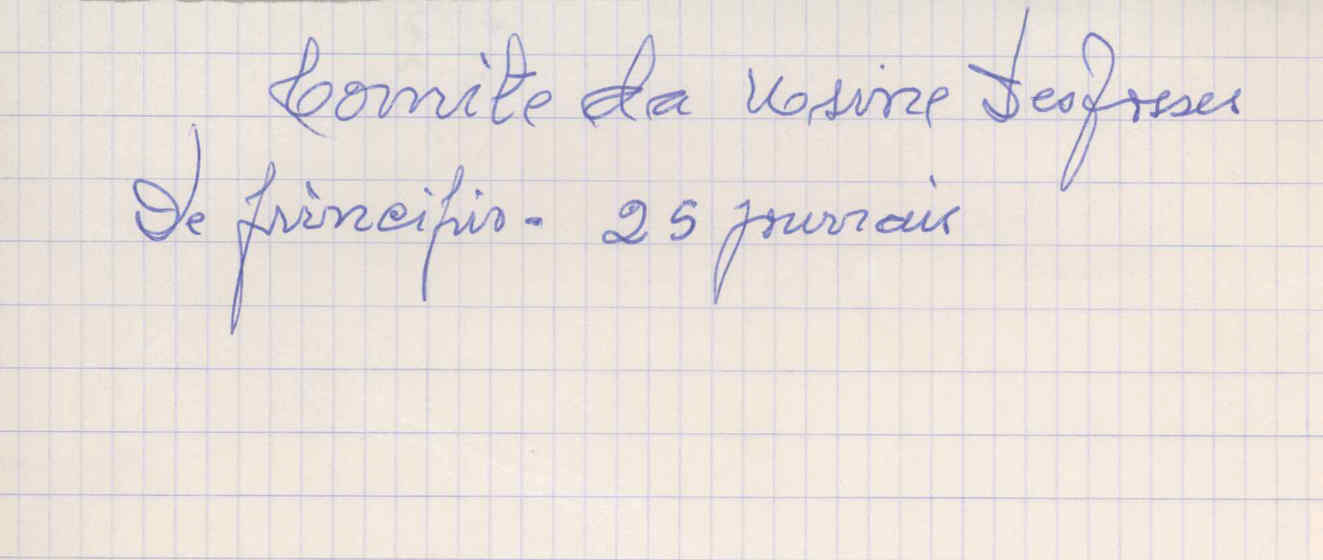 Comite da Usine Desfresses
De principio - 25 jouriais